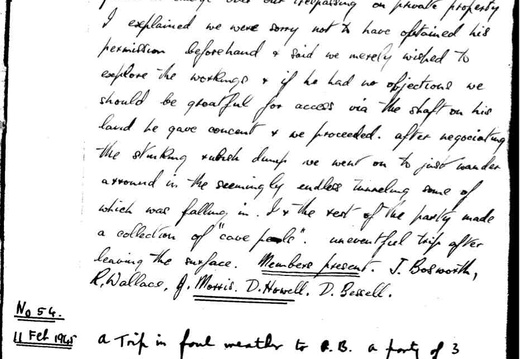 over our trespassing on private property
I explained we were sorry not to have obtained his
permission beforehand & said we merely wished to
explore the workings & if he had no objections we
should be greatful for access via the shaft on his
land he gave concent & we proceeded. after negociating
the stinking rubish dump we went on to just wander
arround in the seemingly endless tunneling some of
which was falling in. I & the rest of the party made
a collection of "cave pearls". uneventful trip after
leaving the surface. Members present. J. Bosworth,
R. Wallace, J. Morris. D. Howell. D. Bessell.
No 54.
11 Feb 1965
a Trip in foul weather to O.B. a party of 3